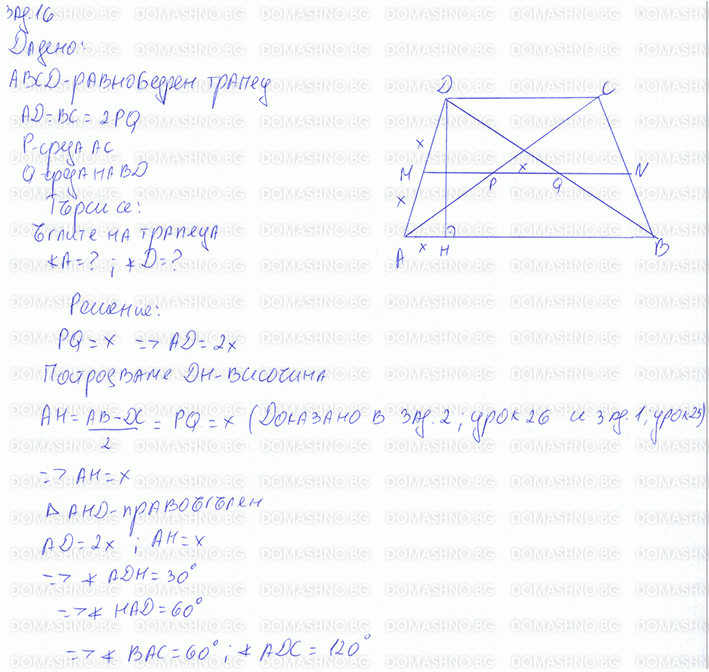 зад.16
Дадено:
ABCD-равнобедрен трапец
AD=BC=2PQ
P-среда AC
Q-среда на BD
Търси се:
ъглите на трапеца
∢A=? ; ∢D=?
D C
x
M P x Q N
x
A x H B
Решение:
PQ=x => AD=2x
Построяваме DH-височина
AH=AB-DC/2=PQ=x (Доказано в зад.2, урок 26 и зад.1; урок 25)
=> AH=x
△AHD-правоъгълен
AD=2x ; AH=x
=> ∢ADH=30°
=> ∢HAD=60°
=> ∢BAC=60° ; ∢ADC=120°
DOMASHNO.BG